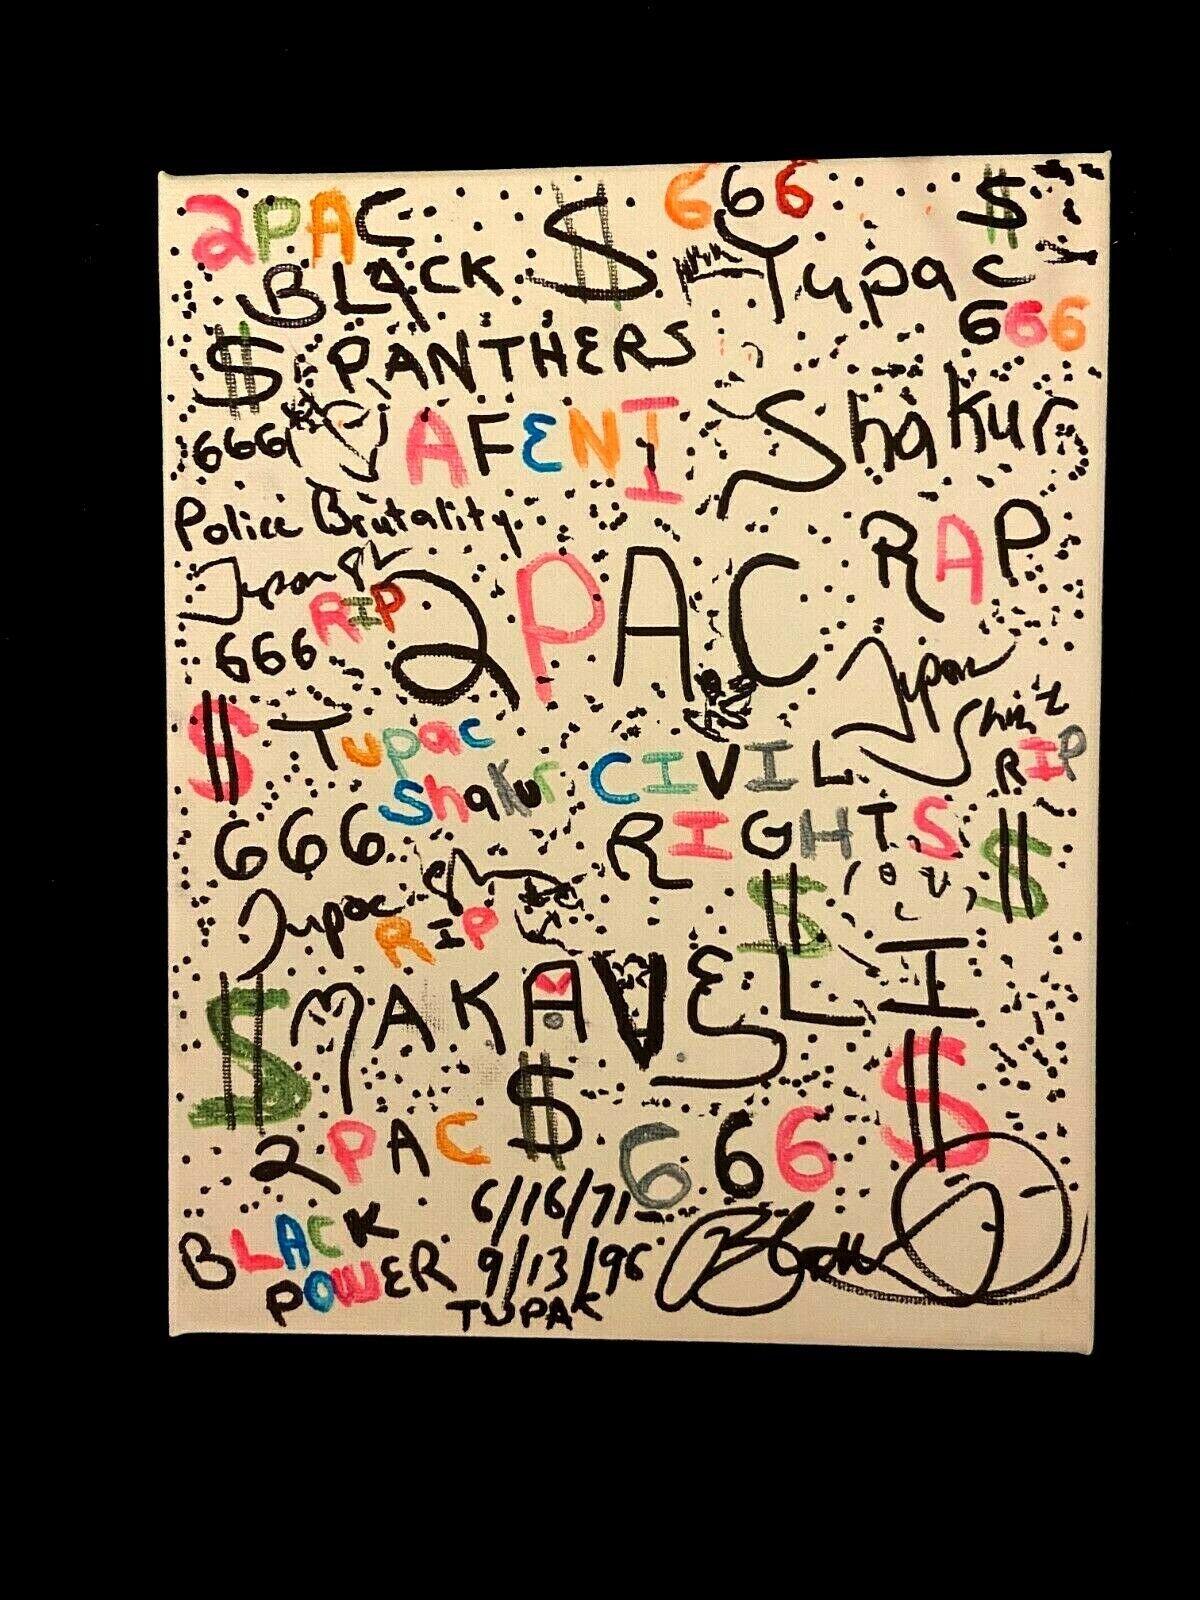 2PAC $ 666 $
BLACK Tupac
$ PANTHERS 666
666 AFENI Shakur
Police Brutality RAP
Tupac
RIP 2PAC
666 Tupac
$ Tupac RIP
Shakur CIVIL
666 RIGHTS $
Tupac $
RIP
$ MAKAVELI
$ $
2PAC 666
6/16/71
BLACK 9/13/96
POWER TUPAK